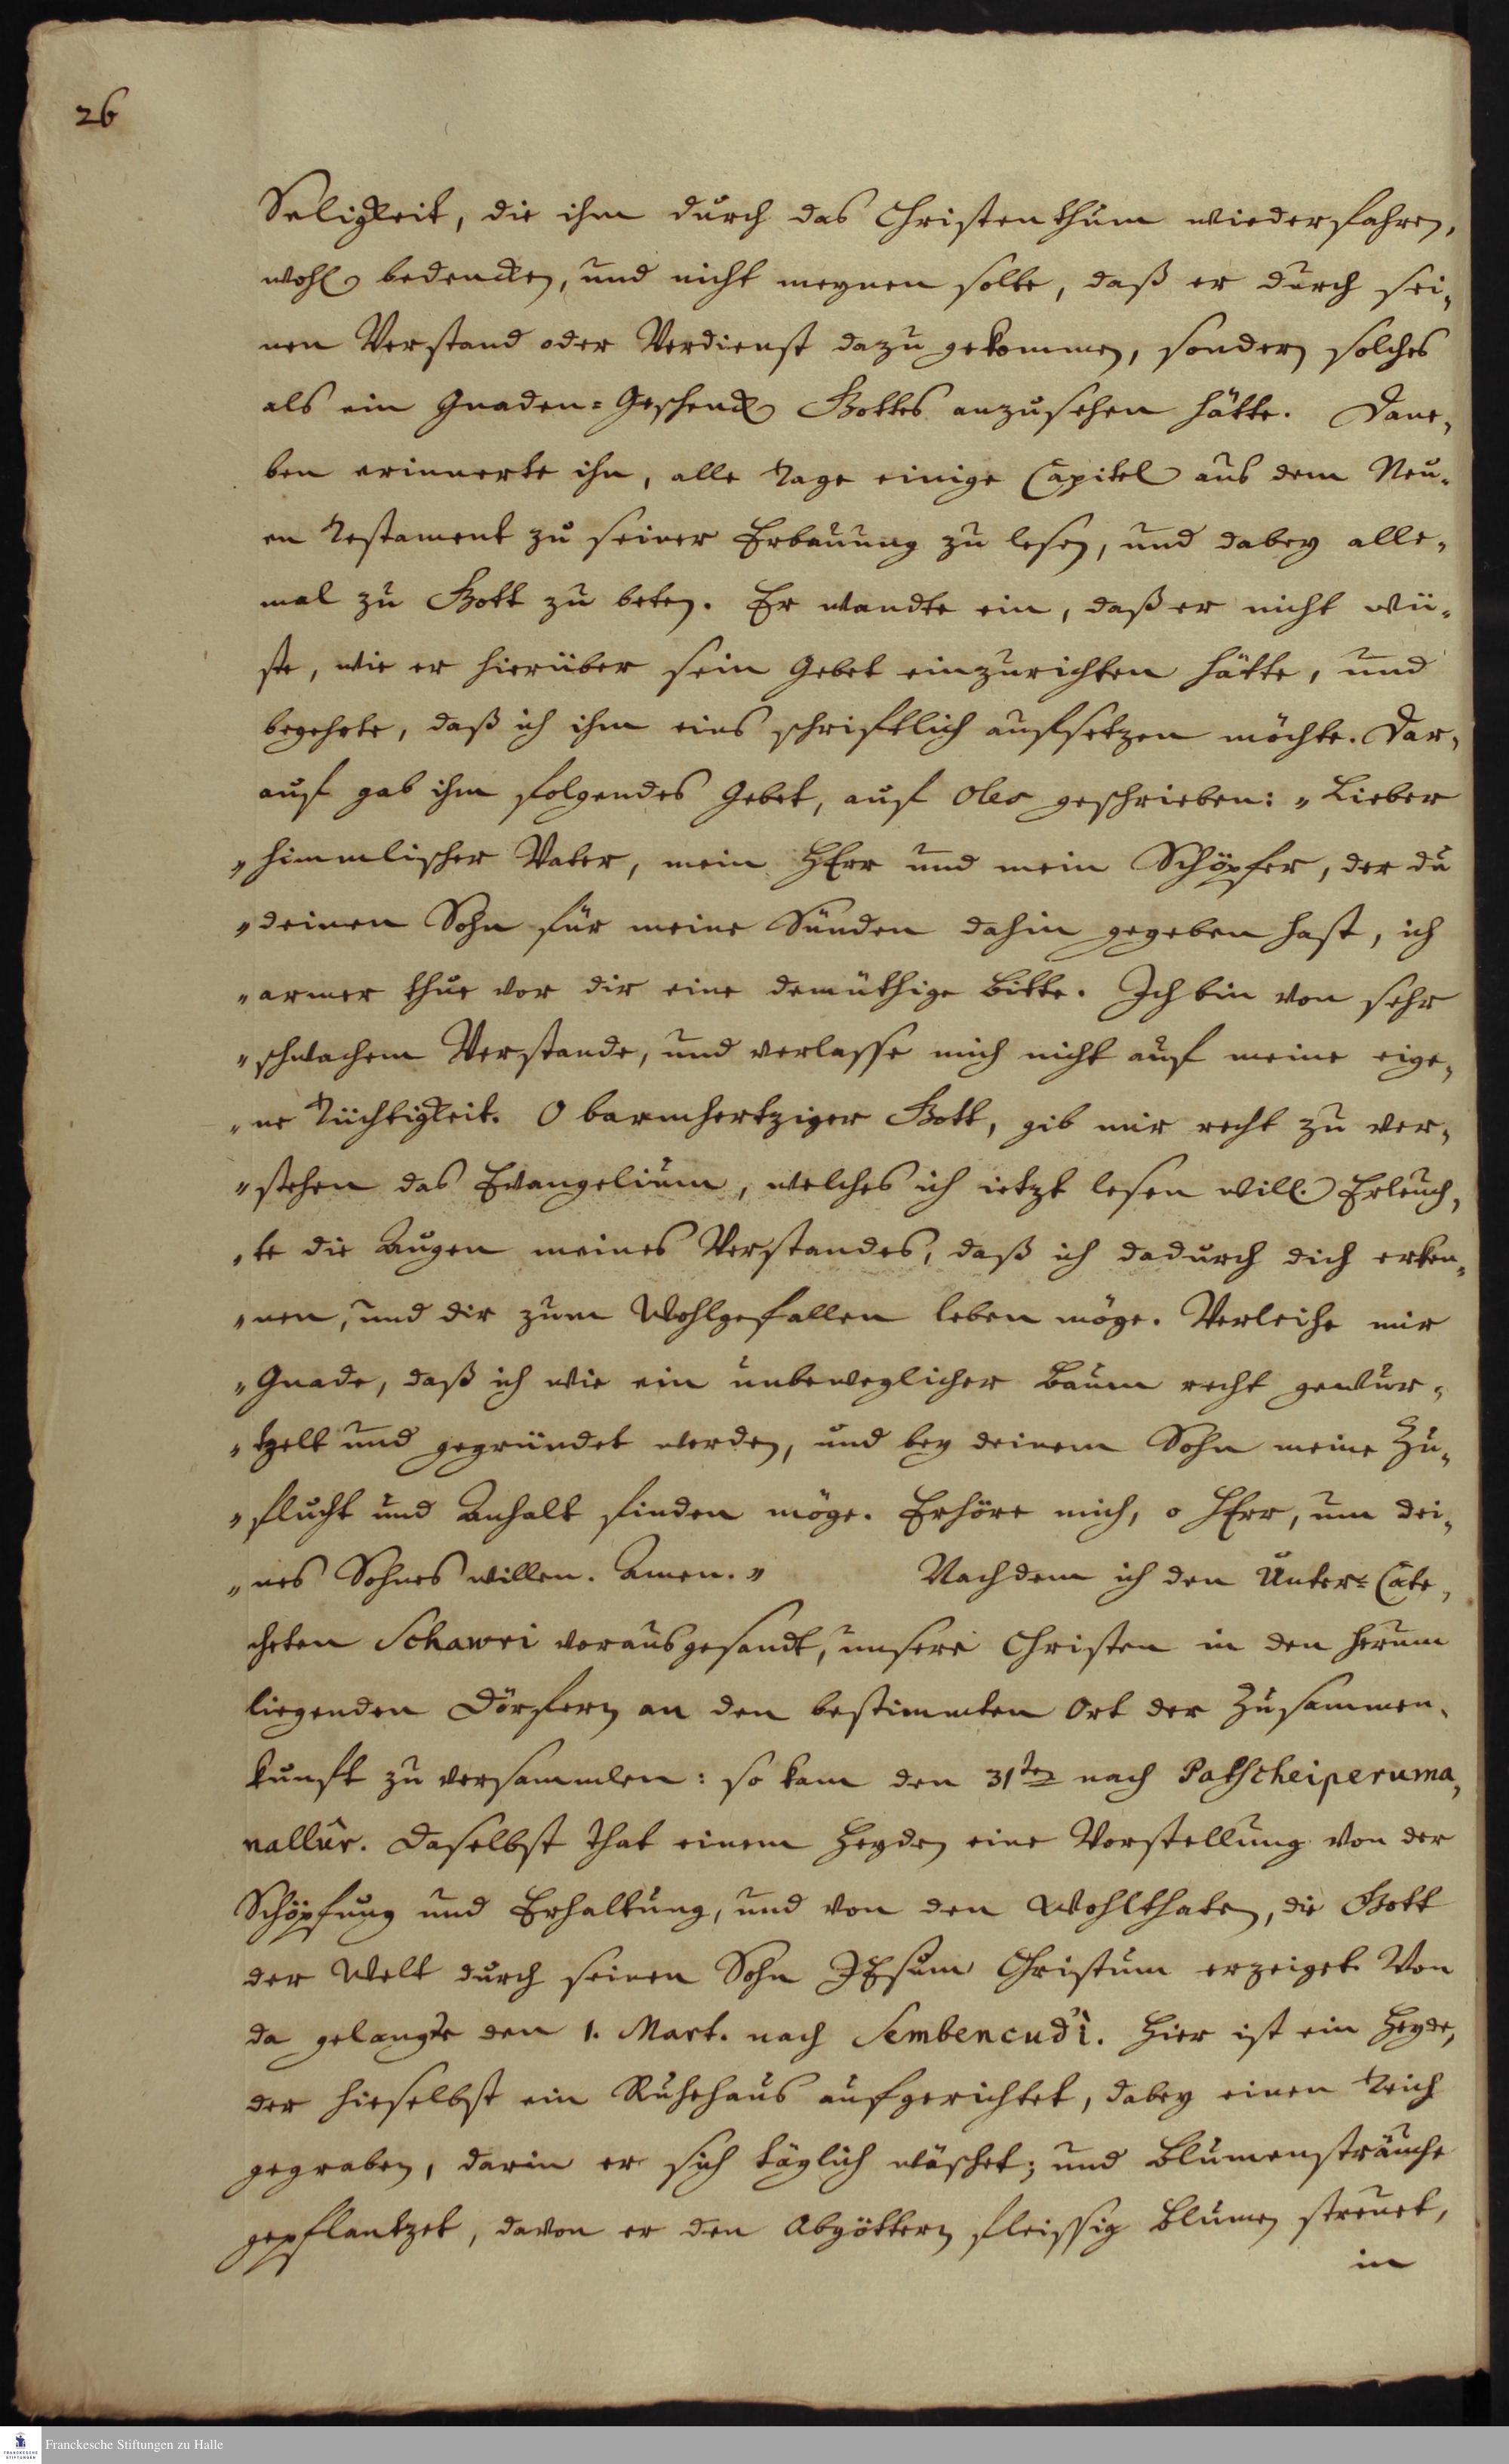 26
Seligkeit, die ihm durch das Christenthum wiederfahren,
wohl bedencken, und nicht meynen solte, daß er durch sei-
nen Verstand oder Verdienst dazu gekommen, sondern solches
als ein Gnaden-Geschenck Gottes anzusehen hätte. Dane-
ben erinnerte ihn, alle Tage einige Capitel aus dem Neu-
en Testament zu seiner Erbauung zu lesen, und dabey alle-
mal zu Gott zu beten. Er wandte ein, daß er nicht wü-
ste, wie er hierüber sein Gebet einzurichten hätte, und
begehrte, daß ich ihm eins schriftlich aufsetzen möchte. Dar-
auf gab ihm folgendes Gebet, auf Oles geschrieben: „Lieber
„himmlischer Vater, mein HErr und mein Schöpfer, der du
„deinen Sohn für meine Sünden dahin gegeben hast, ich
„armer thue vor dir eine demüthige Bitte. Ich bin von sehr
„schwachem Verstande, und verlasse mich nicht auf meine eige-
„ne Tüchtigkeit. O barmhertziger Gott, gib mir recht zu ver-
„stehen das Evangelium, welches ich ietzt lesen will. Erleuch-
„te die Augen meines Verstandes, daß ich dadurch dich erken-
„nen, und dir zum Wohlgefallen leben möge. Verleihe mir
„Gnade, daß ich wie ein unbeweglicher Baum recht gewur-
„tzelt und gegründet werden, und bey deinem Sohn meine Zu-
„flucht und Anhalt finden möge. Erhöre mich, o HErr, um dei-
„nes Sohnes willen. Amen.„ Nachdem ich den Unter-Cate-
cheten Schawri vorausgesandt, unsere Christen in den herum
liegenden Dörfern an den bestimmten Ort der Zusammen-
kunft zu versammlen: so kam den 31ten nach Patscheiperuma-
nallur. Daselbst that einem Heyden eine Vorstellung von der
Schöpfung und Erhaltung, und von den Wohlthaten, die Gott
der Welt durch seinen Sohn JEsum Christum erzeiget. Von
da gelangte den 1. Mart. nach Sembencudi. Hier ist ein Heyde,
der hieselbst ein Ruhehaus aufgerichtet, dabey einen Teich
gegraben, darin er sich täglich wäschet; und Blumensträuche
gepflantzet, davon er den Abgöttern fleissig Blumen streuet,
in
FRANCKESCHE STIFTUNGEN
Franckesche Stiftungen zu Halle